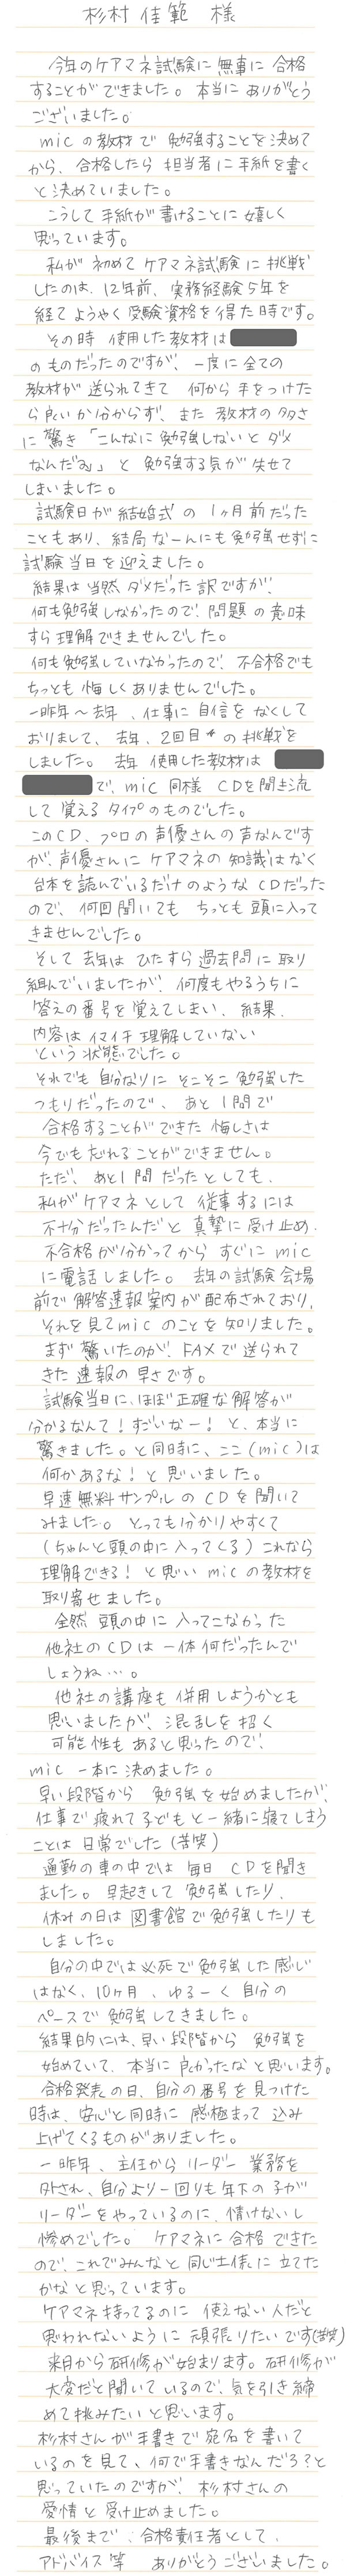 杉村佳範 様
今年のケアマネ試験に無事に合格
することができました。本当にありがとう
ございました。
micの教材で勉強することを決めて
から、合格したら担当者に手紙を書く
と決めていました。
こうして手紙が書けることに嬉しく
思っています。
私が初めてケアマネ試験に挑戦
したのは、12年前、実務経験5年を
経てようやく受験資格を得た時です。
その時 使用した教材は
のものだったのですが、一度に全ての
教材が送られてきて 何から手をつけた
ら良いか分からず、また教材の多さ
に驚き「こんなに勉強しないとダメ
なんだ」と勉強する気が失せて
しまいました。
試験日が結婚式の1ヶ月前だった
こともあり、結局なーんにも勉強せずに
試験当日を迎えました。
結果は当然ダメだった訳ですが、
何も勉強しなかったので、問題の意味
すら理解できませんでした。
何も勉強していなかったので、不合格でも
ちっとも悔しくありませんでした。
一昨年〜去年、仕事に自信をなくして
おりまして、去年、2回目の挑戦を
しました。去年 使用した教材は
で、mic同様 CDを聞き流
して覚えるタイプのものでした。
このCD、プロの声優さんの声なんです
が、声優さんにケアマネの知識はなく
台本を読んでいるだけのようなCDだった
ので、何回聞いてもちっとも頭に入って
きませんでした。
そして去年はひたすら過去問に取り
組んでいましたが、何度もやるうちに
答えの番号を覚えてしまい、結果、
内容はイマイチ理解していない
という状態でした。
それでも自分なりにそこそこ勉強した
つもりだったので、あと1問で
合格することができた悔しさは
今でも忘れることができません。
ただ、あと1問だったとしても、
私がケアマネとして従事するには
不十分だったんだと真摯に受け止め、
不合格が分かってからすぐにmic
に電話しました。去年の試験会場
前で解答速報案内が配布されており、
それを見てmicのことを知りました。
まず驚いたのが、FAXで送られて
きた速報の早さです。
試験当日に、ほぼ正確な解答が
分かるなんて!すごいなー!と、本当に
驚きました。と同時に、ここ(mic)は
何かあるな!と思いました。
早速無料サンプルのCDを聞いて
みました。とっても分かりやすくて
(ちゃんと頭の中に入ってくる)これなら
理解できる!と思いmicの教材を
取り寄せました。
全然 頭の中に入ってこなかった
他社のCDは一体何だったんで
しょうね…。
他社の講座も併用しようかとも
思いましたが、混乱を招く
可能性もあると思ったので、
mic一本に決めました。
早い段階から勉強を始めましたが、
仕事で疲れて子どもと一緒に寝てしまう
ことは日常でした(苦笑)
通勤の車の中では毎日CDを聞き
ました。早起きして勉強したり、
休みの日は図書館で勉強したりも
しました。
自分の中では必死で勉強した感じ
はなく、10ヶ月、ゆるーく自分の
ペースで勉強してきました。
結果的には、早い段階から勉強を
始めていて、本当に良かったなと思います。
合格発表の日、自分の番号を見つけた
時は、安心と同時に感極まって込み
上げてくるものがありました。
一昨年、主任からリーダー業務を
外され、自分より一回りも年下の子が
リーダーをやっているのに、情けないし
惨めでした。ケアマネに合格できた
ので、これでみんなと同じ土俵に立てた
かなと思っています。
ケアマネ持ってるのに使えない人だと
思われないように頑張りたいです(苦笑)
来月から研修が始まります。研修が
大変だと聞いているので、気を引き締
めて挑みたいと思います。
杉村さんが手書きで宛名を書いて
いるのを見て、何で手書きなんだろ?と
思っていたのですが、杉村さんの
愛情と受け止めました。
最後まで、合格責任者として、
アドバイス等 ありがとうございました。